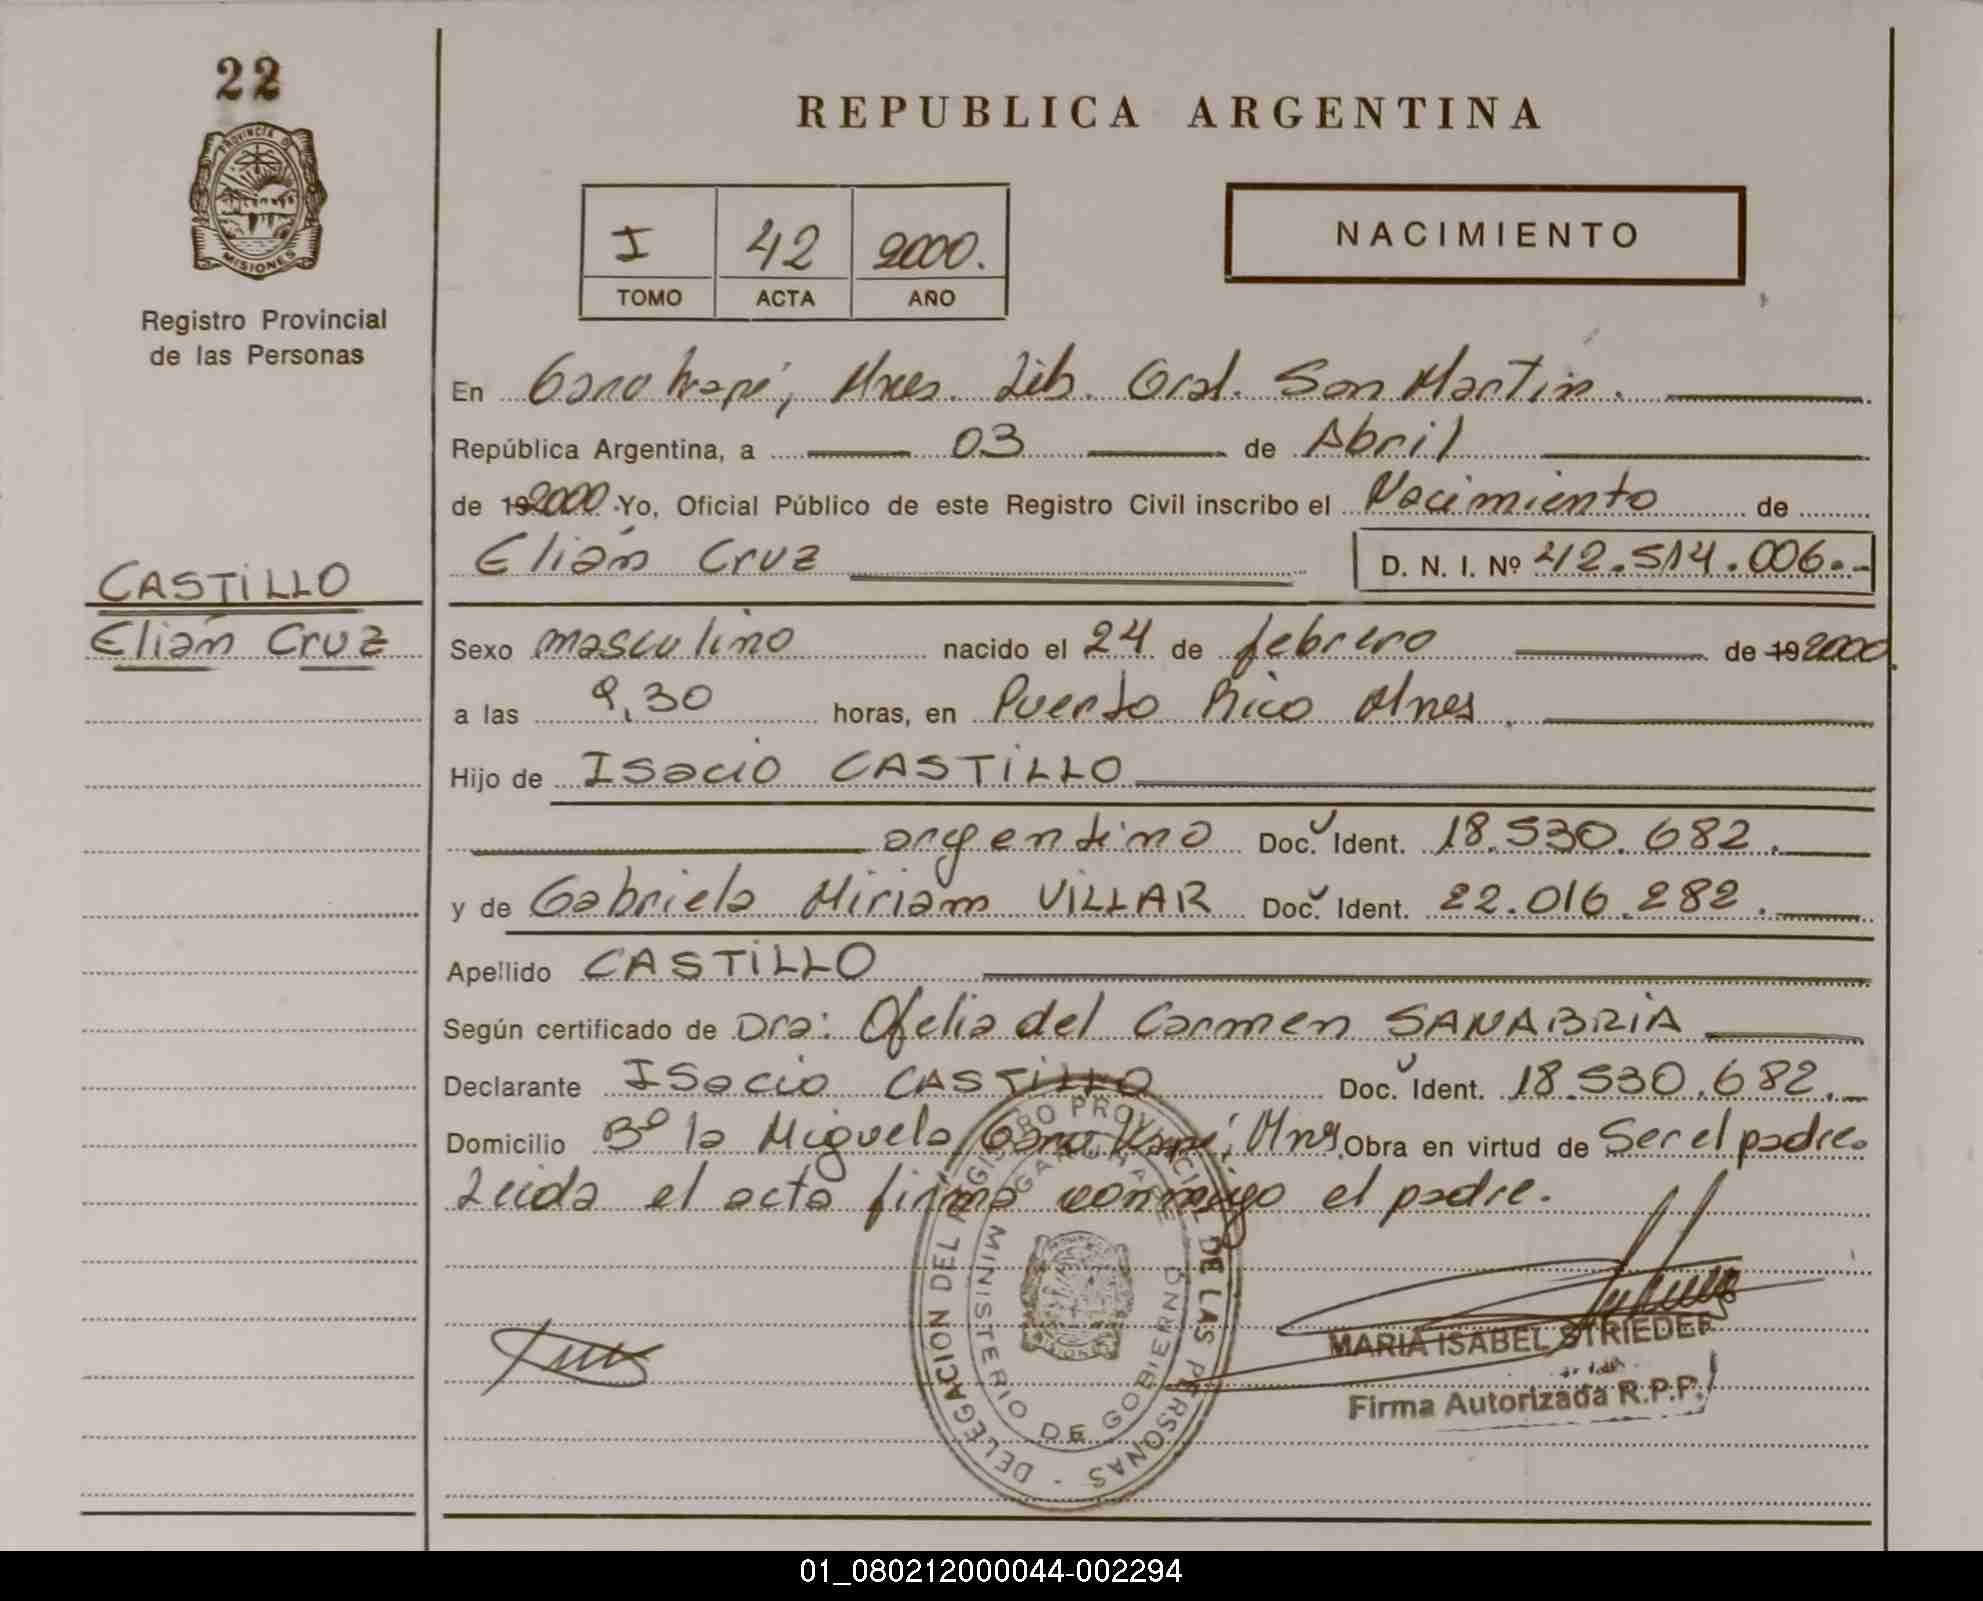 22
PROVINCIA DE
MISIONES
Registro Provincial
de las Personas
CASTILLO
Elián Cruz
REPUBLICA ARGENTINA
I 42 2000.
TOMO ACTA AÑO
NACIMIENTO
En Garuhapé, Mnes. Lib. Gral. San Martín.
República Argentina, a 03 de Abril
de 192000 Yo, Oficial Público de este Registro Civil inscribo el Nacimiento de
Elián Cruz D. N. I. Nº 42.514.006.-
Sexo masculino nacido el 24 de febrero de 192000
a las 9,30 horas, en Puerto Rico Mnes.
Hijo de Isacio CASTILLO
argentino Doc. Ident. 18.530.682.
y de Gabriela Miriam VILLAR Doc. Ident. 22.016.282.
Apellido CASTILLO
Según certificado de Dra: Ofelia del Carmen SANABRIA
Declarante Isacio CASTILLO Doc. Ident. 18.530.682.
Domicilio Bº la Miguela, Garuhapé, Mnes. Obra en virtud de Ser el padre.
Leida el acta firma conmigo el padre.
DELEGACION DEL REGISTRO PROVINCIAL DE LAS PERSONAS -
GARUHAPE
MINISTERIO DE GOBIERNO
MISIONES
MARIA ISABEL STRIEDER
Firma Autorizada R.P.P.
01_080212000044-002294